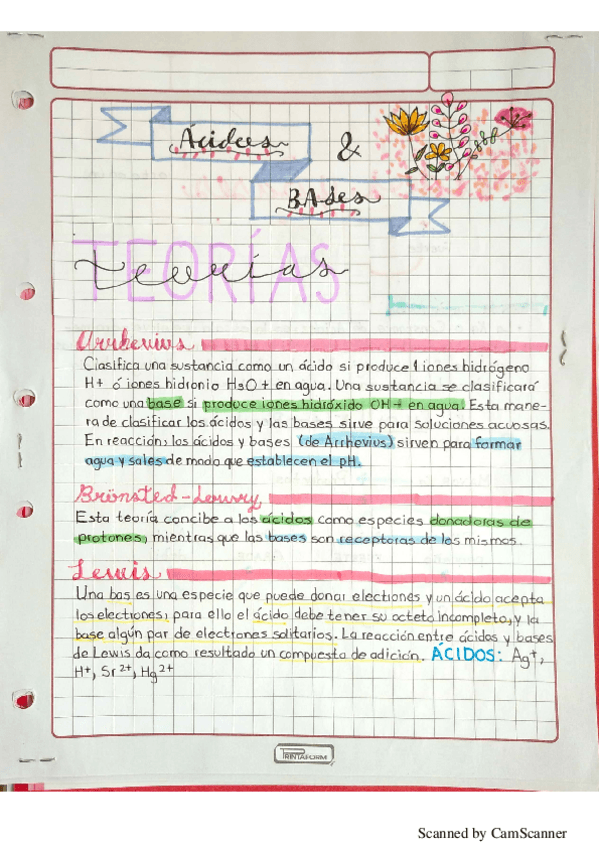 Ácidos &
BAses
TEORÍAS
Teorías
Arrhenius
Clasifica una sustancia como un ácido si produce iones hidrógeno
H+ ó iones hidronio H3O+ en agua. Una sustancia se clasificará
como una base si produce iones hidróxido OH- en agua. Esta mane-
ra de clasificar los ácidos y las bases sirve para soluciones acuosas.
En reacción, los ácidos y bases (de Arrhenius) sirven para formar
agua y sales de modo que establecen el pH.
Brönsted-Lowry
Esta teoría concibe a los ácidos como especies donadoras de
protones, mientras que las bases son receptoras de los mismos.
Lewis
Una bas es una especie que puede donar electiones y un ácido acepta
los electiones; para ello el ácido debe tener su octeto incompleto, y la
base algún par de electrones solitarios. La reacción entre ácidos y bases
de Lewis da como resultado un compuesto de adición. ÁCIDOS: Ag+,
H+, Sr2+, Hg2+
PRINTAFORM
Scanned by CamScanner